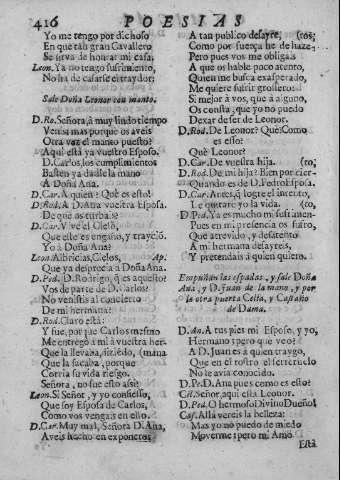 416 POESIAS
Yo me tengo por dichoso
En que tan gran Cavallero
Se sirva de honrar mi casa.
Leon. Ya no tengo sufrimiento,
No ha de casarse el traydor;
Sale Doña Leonor con manto.
D. Ro. Señora, à muy lindo tiempo
Venis; mas porque os aveis
Otra vez el manto puesto?
Aqui està ya vuestro Esposo.
D. Carlos, los cumplimientos
Basten ya, dadle la mano
A Doña Ana.
D. Car. A quien? Què es esto?
D. Rod. A D. Ana vuestra Esposa.
De què os turbais?
D. Car. Vive el Cielo,
Que este es engaño, y traycion.
Yo à Doña Ana?
Leon. Albricias, Cielos, Ap.
Que ya desprecia à Doña Ana.
D. Ped. D. Rodrigo, què es aquesto?
Vos de parte de D. Carlos
No venisteis al concierto
De mi hermana?
D. Rod. Claro està:
Y fue, porque Carlos mesmo
Me entregò à mi à vuestra her-
Que la llevaba, diziendo, (mana
Que la sacaba, porque
Corria su vida riesgo.
Señora, no fue esto assi?
Leon. Si Señor, y yo confiesso,
Que soy Esposa de Carlos,
Como vos vengais en ello.
D. Car. Muy mal, Señora D. Ana,
Aveis hecho en exponeros
A tan publico desayre, (ros;
Como por fuerça he de haze-
Pero pues vos me obligais
A que os hable poco atento,
Quien me busca exasperado,
Me quiere sufrir grossero:
Si mejor à vos, que à alguno,
Os consta, que yo no puedo
Dexar de ser de Leonor.
D. Rod. De Leonor? Què? Como
es esso?
Què Leonor?
D. Car. De vuestra hija. (to,
D. Rod. De mi hija? Bien por cier-
Quando es de D. Pedro Esposa.
D. Car. Antes, que logre el intento,
Le quitarè yo la vida. (to,
D. Ped. Ya es mucho mi sufrimien-
Pues en mi presencia os sufro,
Que atrevido, y desatento
A mi hermana desayreis,
Y pretendais à quien quiero.
Empuñan las espadas, y sale Doña
Ana, y D. Juan de la mano, y por
la otra puerta Celia, y Castaño
de Dama.
D. An. A tus pies mi Esposo, y yo,
Hermano; pero que veo?
A D. Juan es à quien traygo,
Que en el rostro el ferreruelo
No le avia conocido.
D. Pe. D. Ana pues como es esto?
Cel. Señor, aqui està Leonor.
D. Ped. O hermoso Divino Dueño!
Cas. Allà vereis la belleza:
Mas yo no puedo de miedo
Moverme; pero mi Amo
Està